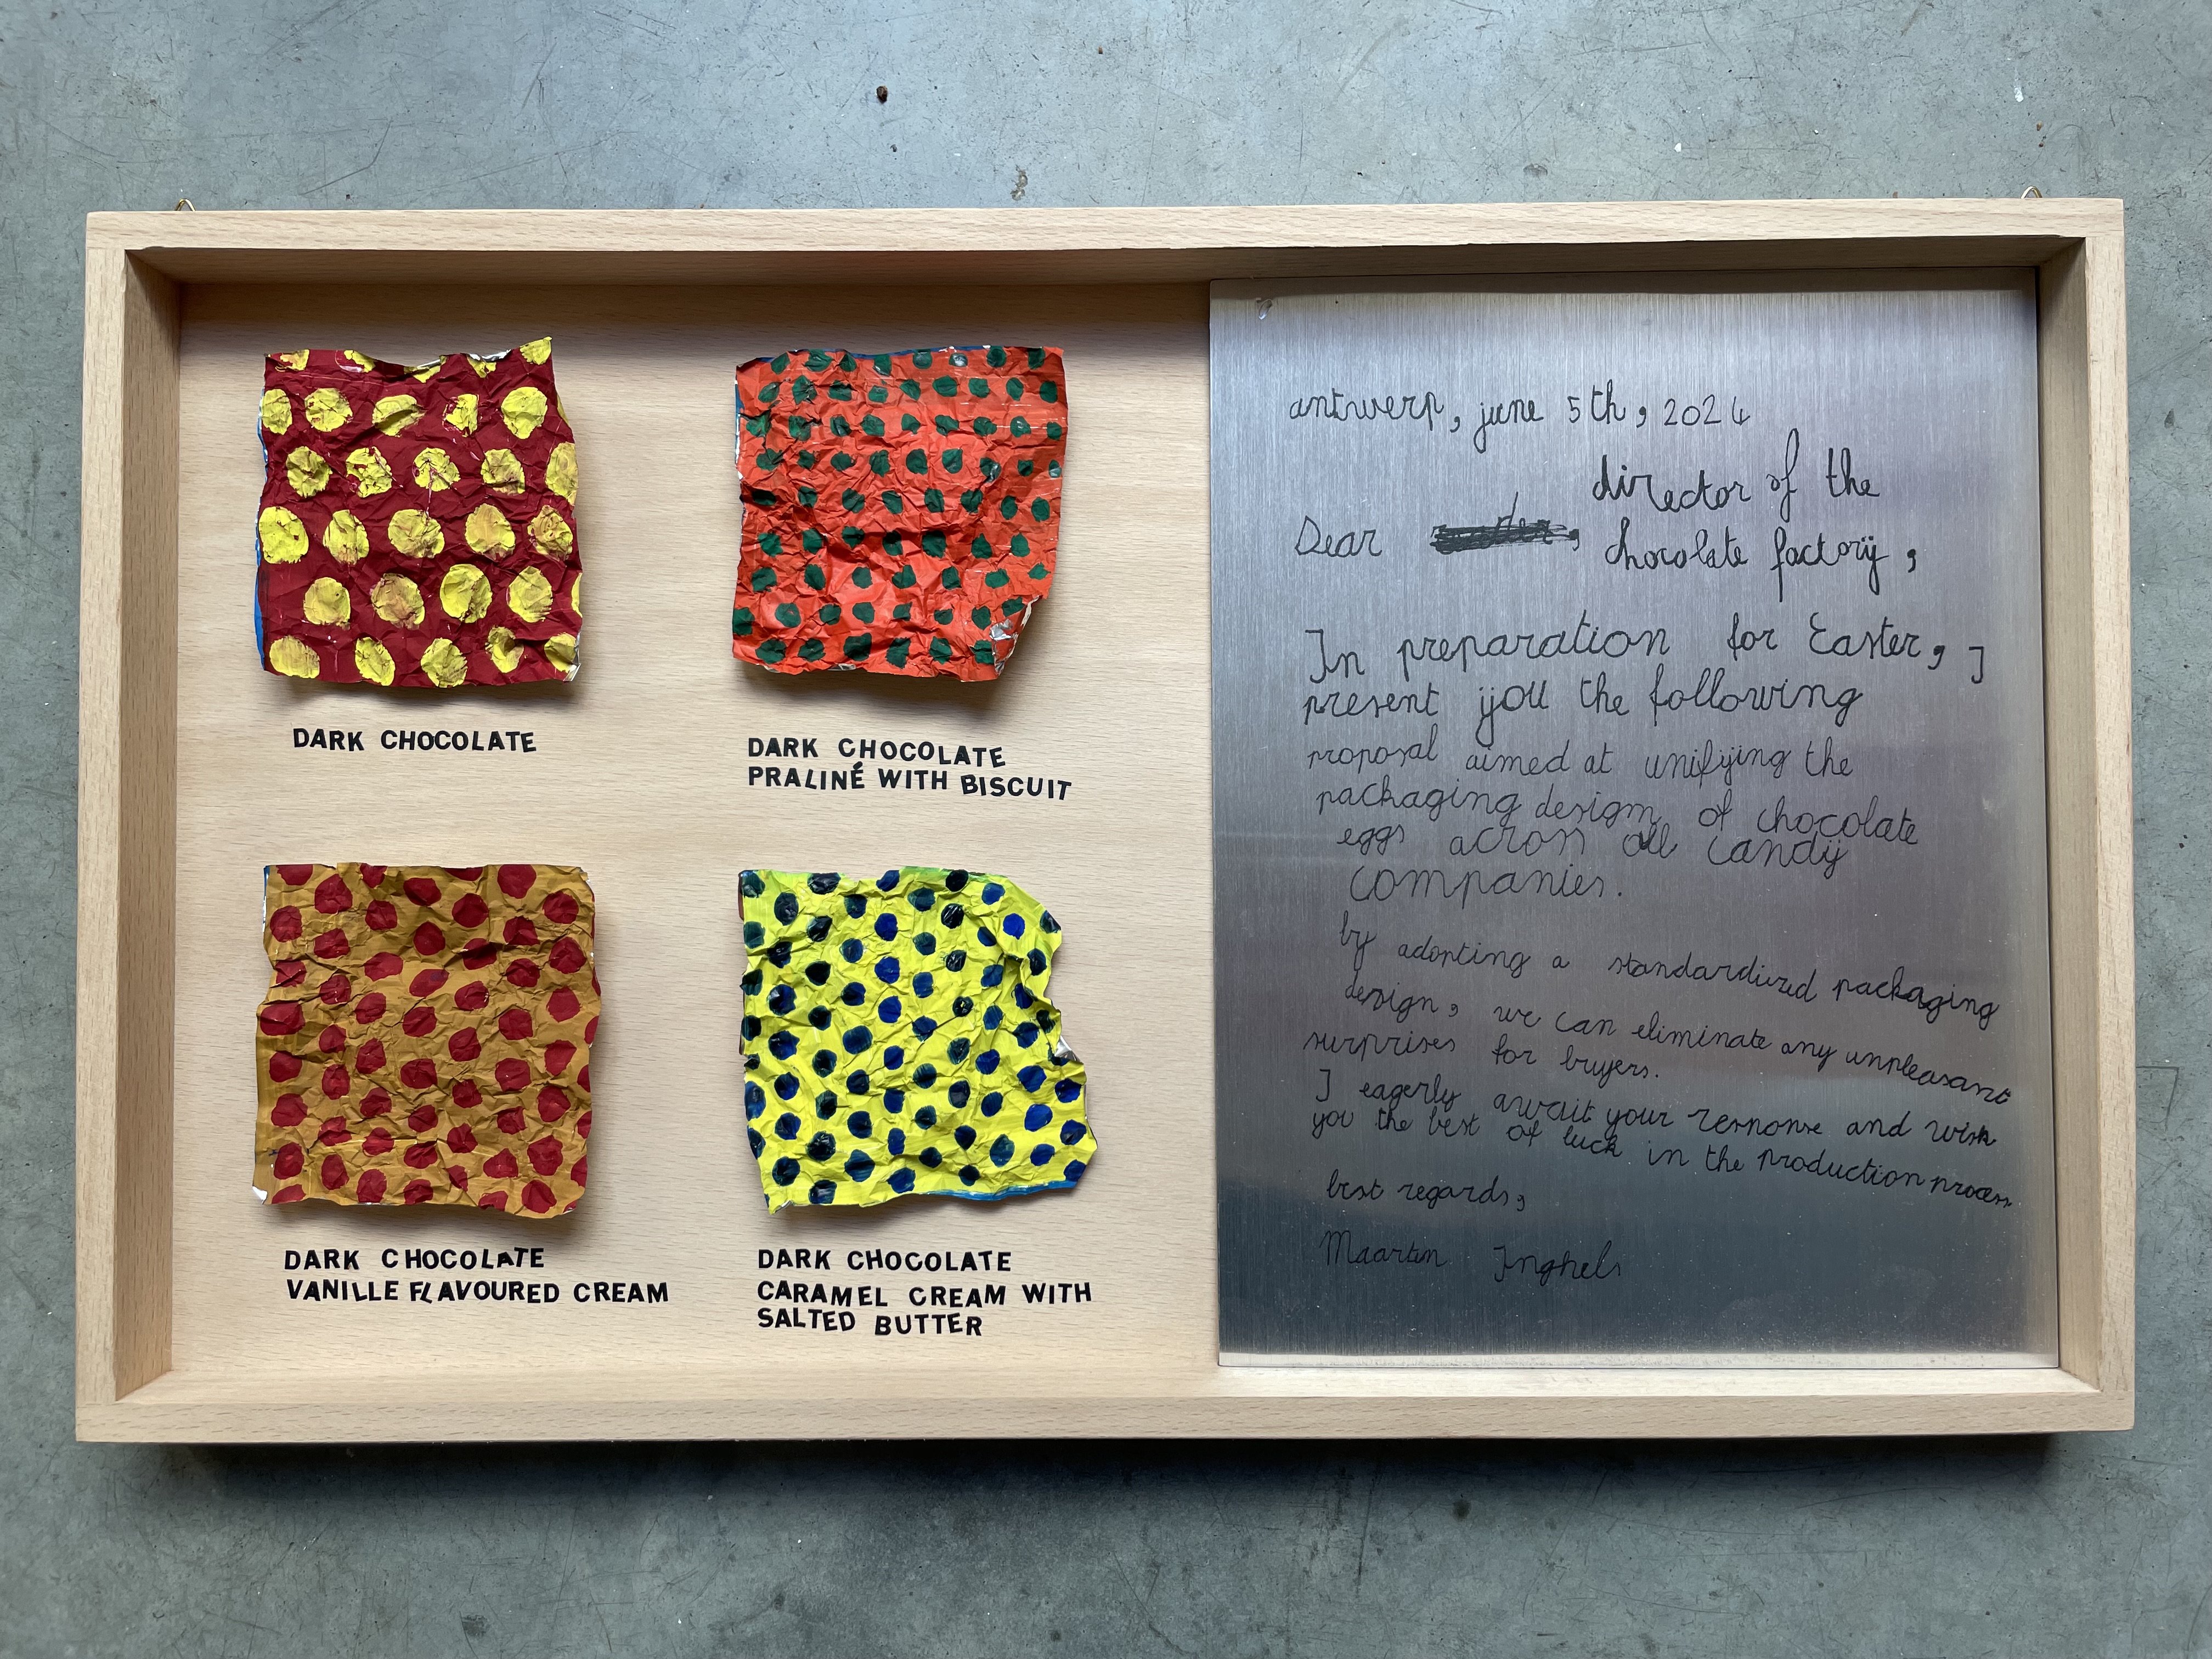 DARK CHOCOLATE
DARK CHOCOLATE
PRALINÉ WITH BISCUIT
DARK CHOCOLATE
VANILLE FLAVOURED CREAM
DARK CHOCOLATE
CARAMEL CREAM WITH
SALTED BUTTER
antwerp, june 5th, 2024
director of the
Dear
chocolate factory,
In preparation for Easter, I
present you the following
proposal aimed at unifying the
packaging design of chocolate
eggs across all candy
companies.
by adopting a standardized packaging
design, we can eliminate any unpleasant
surprises for buyers.
I eagerly await your response and wish
you the best of luck in the production process
best regards,
Maarten Inghels